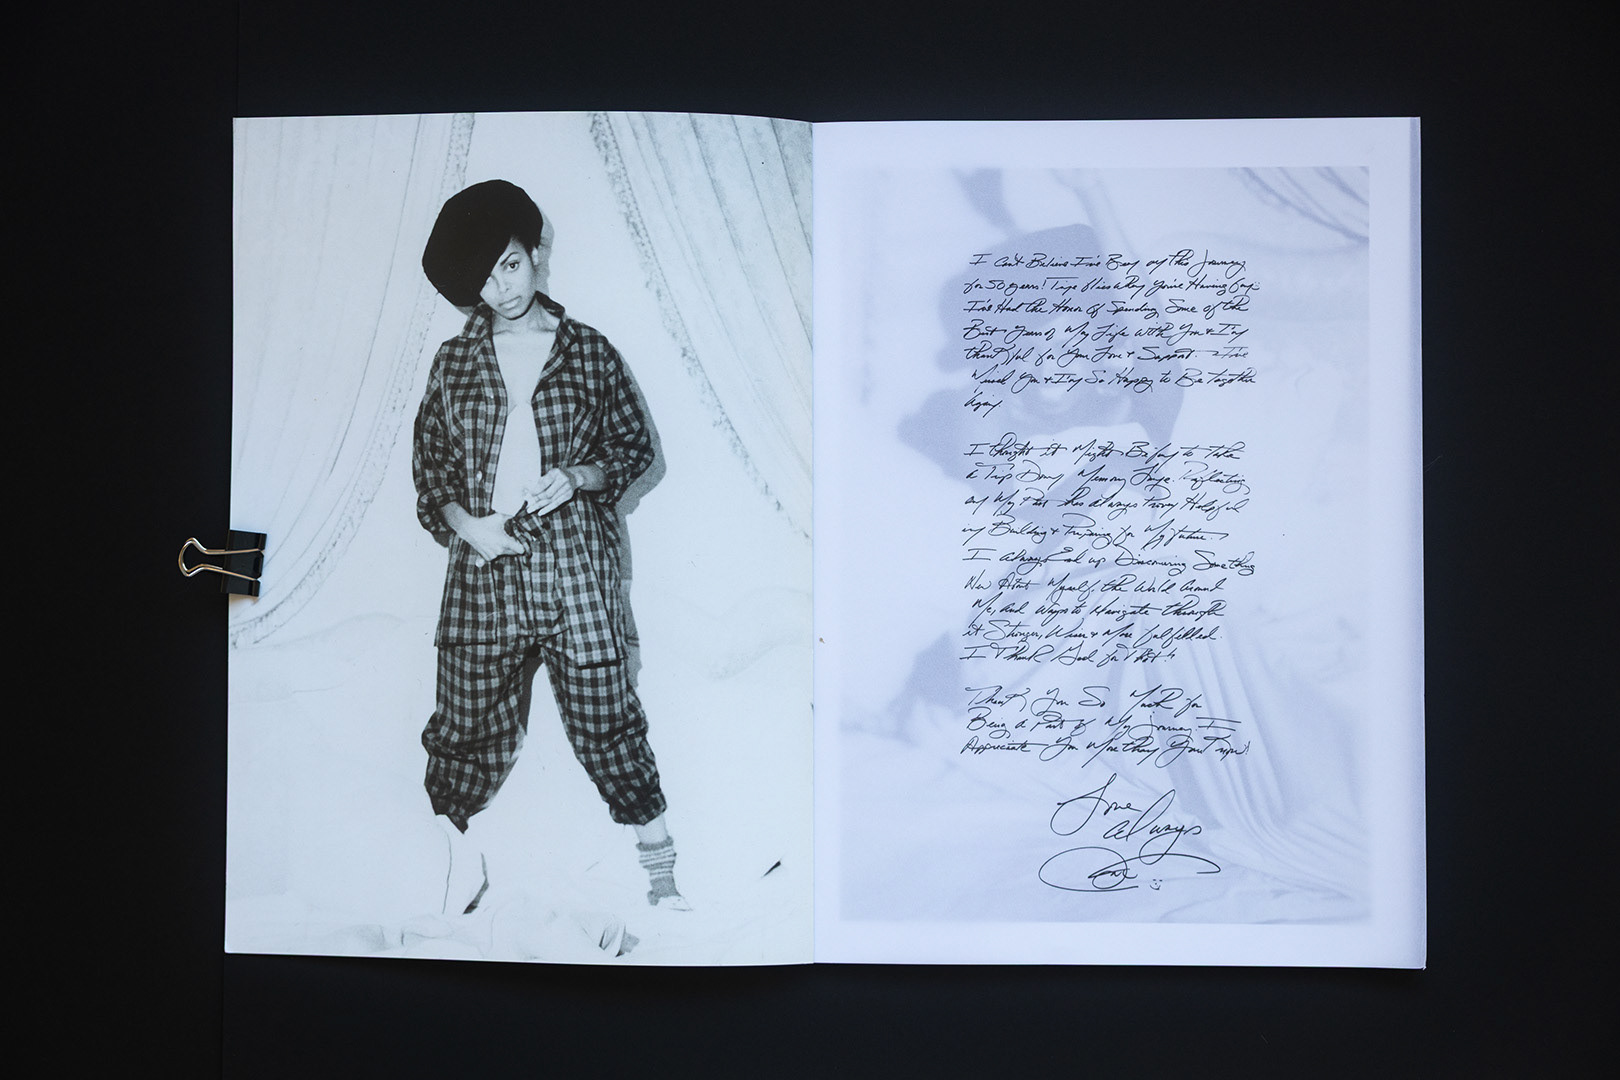 I Can't Believe I've Been on this Journey
for 50 years! Time flies when You're Having fun.
I've Had the Honor of Spending Some of the
Best Years of My Life With You & I'm
thankful for Your Love & Support. I've
Missed You & I'm So Happy to Be together
Again.
I thought it Might Be fun to Take
a Trip Down Memory Lane. Reflecting
on My Past Has always Proven Helpful
in Building & Preparing for My future.
I always End up Discovering Something
New About Myself, the World Around
Me, And Ways to Navigate through
it Stronger, Wiser & More fulfilled.
I Thank God for That!
Thank You So Much for
Being a Part of My journey. I
Appreciate You More than You'll know!
Love
always